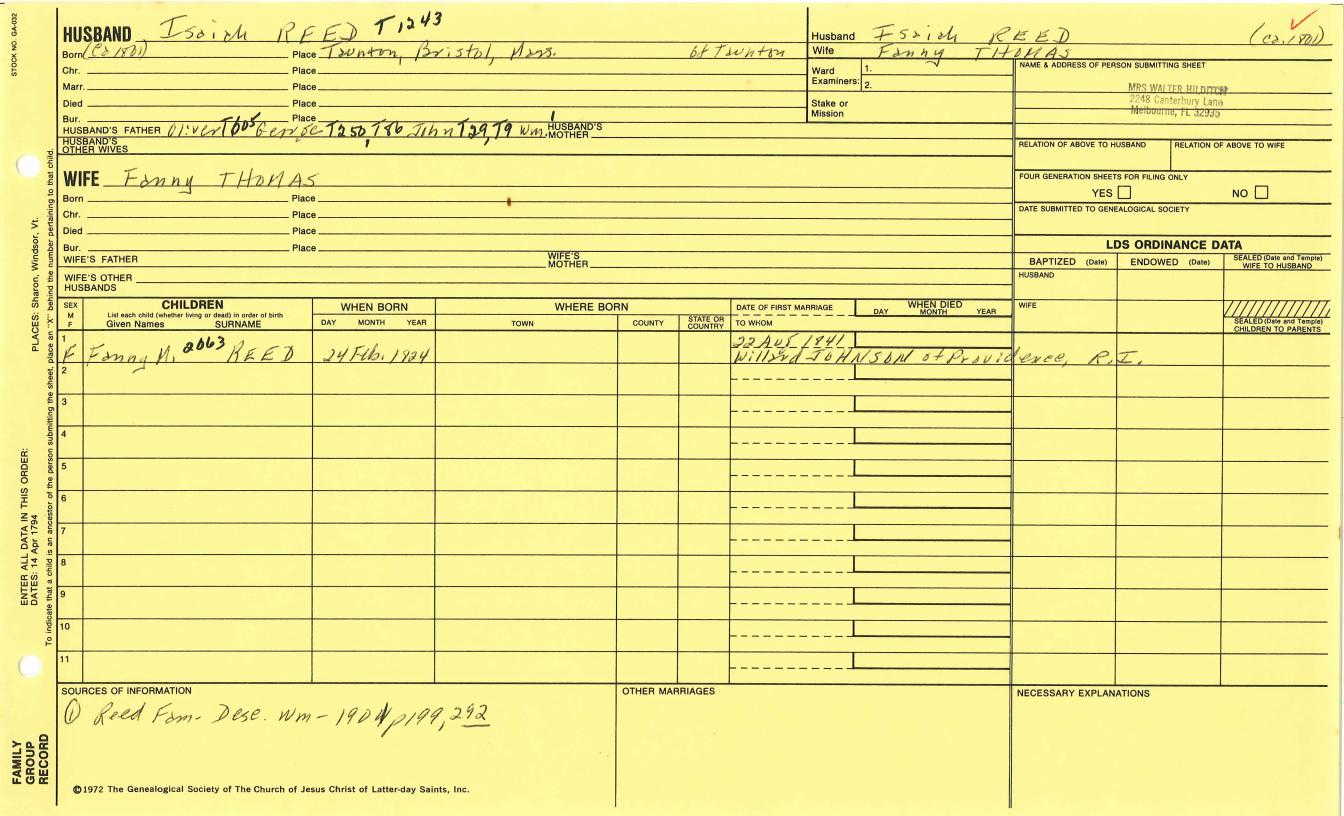 STOCK NO. GA-032
HUSBAND Isaiah REED T1243
Born (Ca 1801) Place Taunton, Bristol, Mass. of Taunton
Chr. Place
Marr. Place
Died Place
Bur. Place
HUSBAND'S FATHER Oliver T605 George T250, T86 John T29, T9 Wm, HUSBAND'S MOTHER
HUSBAND'S OTHER WIVES
WIFE Fanny THOMAS
Born Place
Chr. Place
Died Place
Bur. Place
WIFE'S FATHER WIFE'S MOTHER
WIFE'S OTHER HUSBANDS
Husband Isaiah REED (ca. 1801)
Wife Fanny THOMAS
Ward Examiners: 1.
2.
Stake or Mission
NAME & ADDRESS OF PERSON SUBMITTING SHEET
MRS WALTER HILDITCH
2248 Canterbury Lane
Melbourne, FL 32935
RELATION OF ABOVE TO HUSBAND RELATION OF ABOVE TO WIFE
FOUR GENERATION SHEETS FOR FILING ONLY
YES NO
DATE SUBMITTED TO GENEALOGICAL SOCIETY
LDS ORDINANCE DATA
BAPTIZED (Date) ENDOWED (Date) SEALED (Date and Temple) WIFE TO HUSBAND
HUSBAND
WIFE
SEALED (Date and Temple) CHILDREN TO PARENTS
SEX M F
CHILDREN
List each child (whether living or dead) in order of birth
Given Names SURNAME
WHEN BORN
DAY MONTH YEAR
WHERE BORN
TOWN COUNTY STATE OR COUNTRY
DATE OF FIRST MARRIAGE
TO WHOM
WHEN DIED
DAY MONTH YEAR
1 22 Aug 1841
F Fanny M. 2063 REED 24 Feb. 1824 Willard JOHNSON of Providence, R.I.
2
3
4
5
6
7
8
9
10
11
SOURCES OF INFORMATION
① Reed Fam- Desc. Wm- 1901 p199, 292
OTHER MARRIAGES
NECESSARY EXPLANATIONS
©1972 The Genealogical Society of The Church of Jesus Christ of Latter-day Saints, Inc.
PLACES: Sharon, Windsor, Vt.
ENTER ALL DATA IN THIS ORDER:
DATES: 14 Apr 1794
To indicate that a child is an ancestor of the person submitting the sheet, place an "X" behind the number pertaining to that child.
FAMILY GROUP RECORD